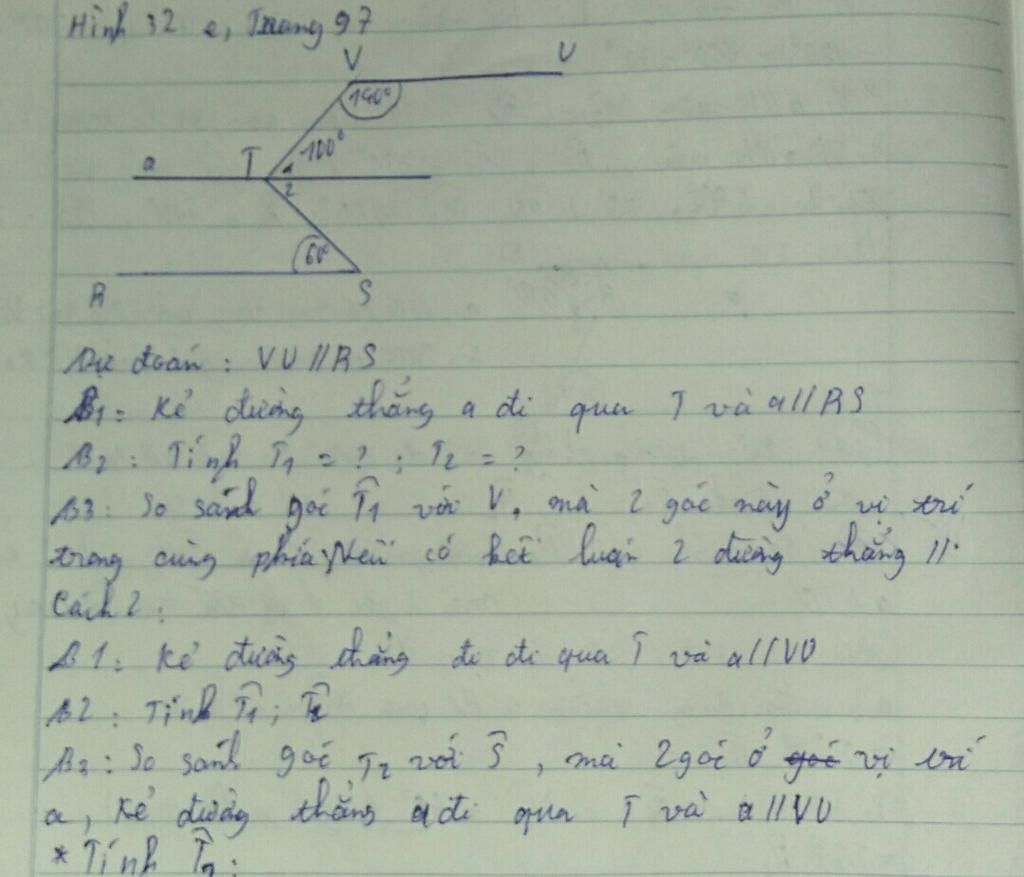 Hình 32 e, Trang 97
V U
140°
T 100°
a 1
2
60°
R S
Dự đoán : VU // RS
B1: Kẻ đường thẳng a đi qua T và a // RS
B2 : Tính T1 = ? ; T2 = ?
B3: So sánh góc T̂1 với V, mà 2 góc này ở vị trí
trong cùng phía, Nếu có kết luận 2 đường thẳng //.
Cách 2 :
B1: Kẻ đường thẳng đi đi qua T và a // VU
B2 : Tính T̂1 ; T̂2
B3 : So sánh góc T2 với Ŝ , mà 2 góc ở góc vị trí
a, Kẻ đường thẳng a đi qua T và a // VU
* Tính